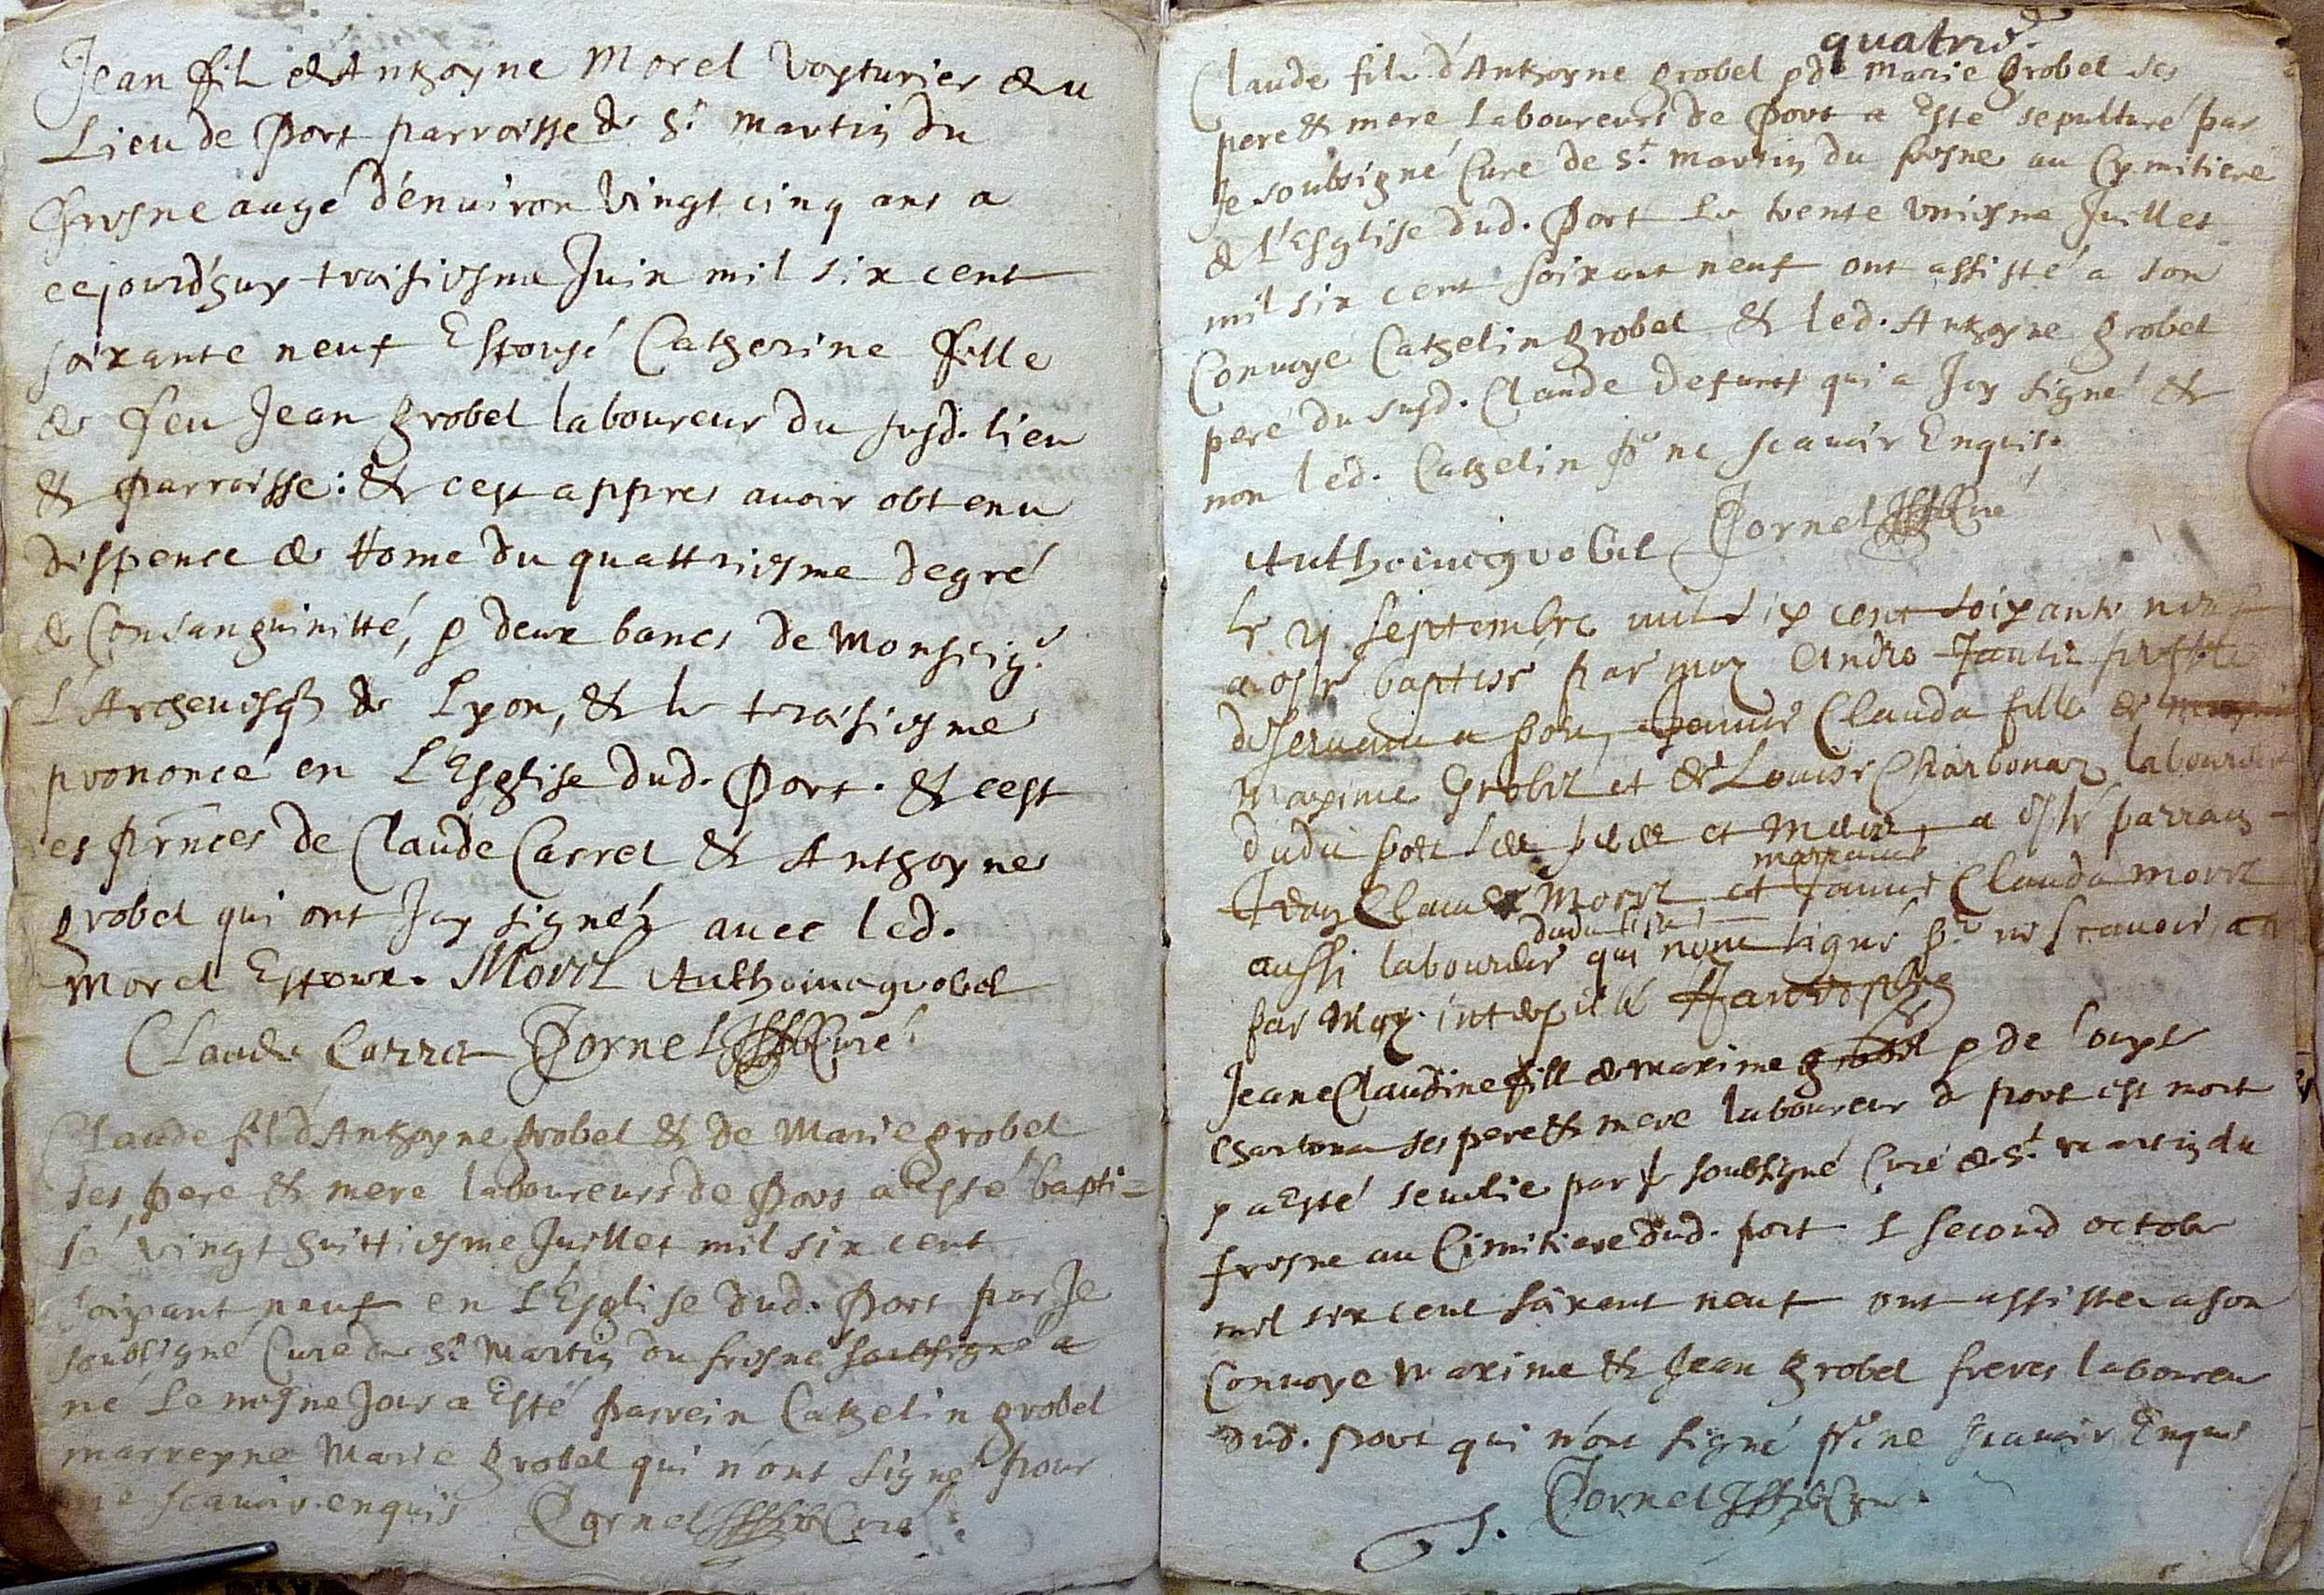 Jean fil de Anthoyne Morel Voyturier du
Lieu de Port parroisse de St martin du
fresne augé d'enuiron Vingt cinq ans a
cejourd'huy troisiesme Juin mil six cent
soixante neuf Espousé Catherine fille
de feu Jean grobel laboureur du susd. lieu
& parroisse: & cest appres auoir obtenu
dispence de Rome du quattriesme degré
de Consanguinitté, p deux bancs de Monseigr
L'Archeuisq de Lyon, & le troisiesme
prononcé en L'Esglise dud. Port. & cest
es pñces de Claude Carrel & Anthoyne
grobel qui ont Icy signéz auec led.
Morel Espoux. Morel Anthoine grobel
Claude Carret Cornel Curé
Claude fil d'Anthoyne grobel & de Marie grobel
ses pere & mere laboureurs de Port a Esté bapti=
sé vingt huittiesme Juillet mil six cent
soixant neuf en L'Esglise dud. Port par Je
soubsigné Curé de St Martin du fresne soubsigné a
né Le mesne Jour a Esté parrein Cathelin grobel
marreyne Marie grobel qui n'ont signé pour
ne scauoir enquis Cornel Curé
quatre
Claude fil d'Anthoyne grobel & de marie grobel ses
pere & mere laboureurs de Port a Esté sepulturé par
Je soubsigné Curé de St martin du fresne au Cymitiere
de l'Esglise dud. Port Le trente vniesme Juillet
mil six cent soixant neuf ont assisté a son
Conuoye Cathelin grobel & led. Anthoyne grobel
pere du susd. Claude defunct qui a Icy signé &
non led. Cathelin pr ne scauoir Enquis.
Anthoine grobel Cornel Curé
le 21 septembre mil six cent soixante neuf
a esté baptisé par moy Jantet prestre
deseruant a port, Jeanne Clauda fille de
maxime Grobel et de Louise Charbonaz laboureur
dudit port ses pere et mere, a esté parrain
marraine
Jean Claude Morel et Jeanne Clauda morel
dudit lieu
aussi laboureur qui nont signé pr ne scauoir
par moy interpellé
Jeane Claudine fille de maxime grobel & de Louyse
Charbona ses pere & mere laboureur de port est mort
& a Esté seuelie par Je soubsigné Curé de St martin du
fresne au Cimitiere dud. port L second octobre
mil six cent soixant neuf ont assistez a son
Conuoye maxime & Jean grobel freres laboureur
dud. port qui n'ont signé pr ne scauoir Enquis
Cornel Curé